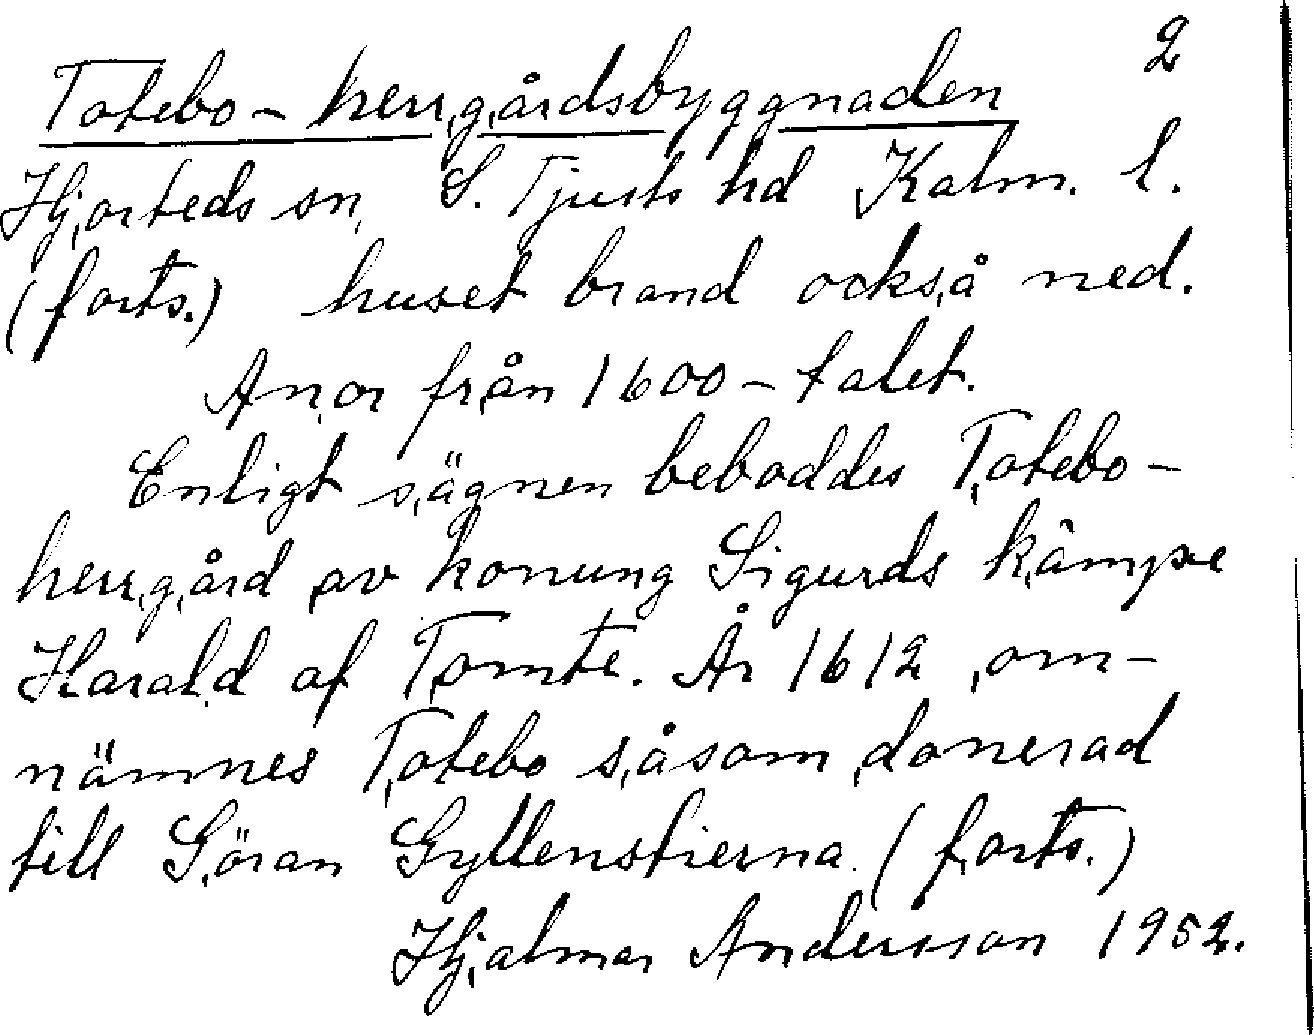 2
Totebo - herrgårdsbyggnaden
Hjorteds sn, S. Tjusts hd Kalm. l.
(forts.) huset brand också ned.
Anor från 1600-talet.
Enligt sägnen beboddes Totebo-
herrgård av konung Sigurds kämpe
Harald af Tomte. År 1612 om-
nämnes Totebo såsom donerad
till Göran Gyllenstierna. (forts.)
Hjalmar Andersson 1952.